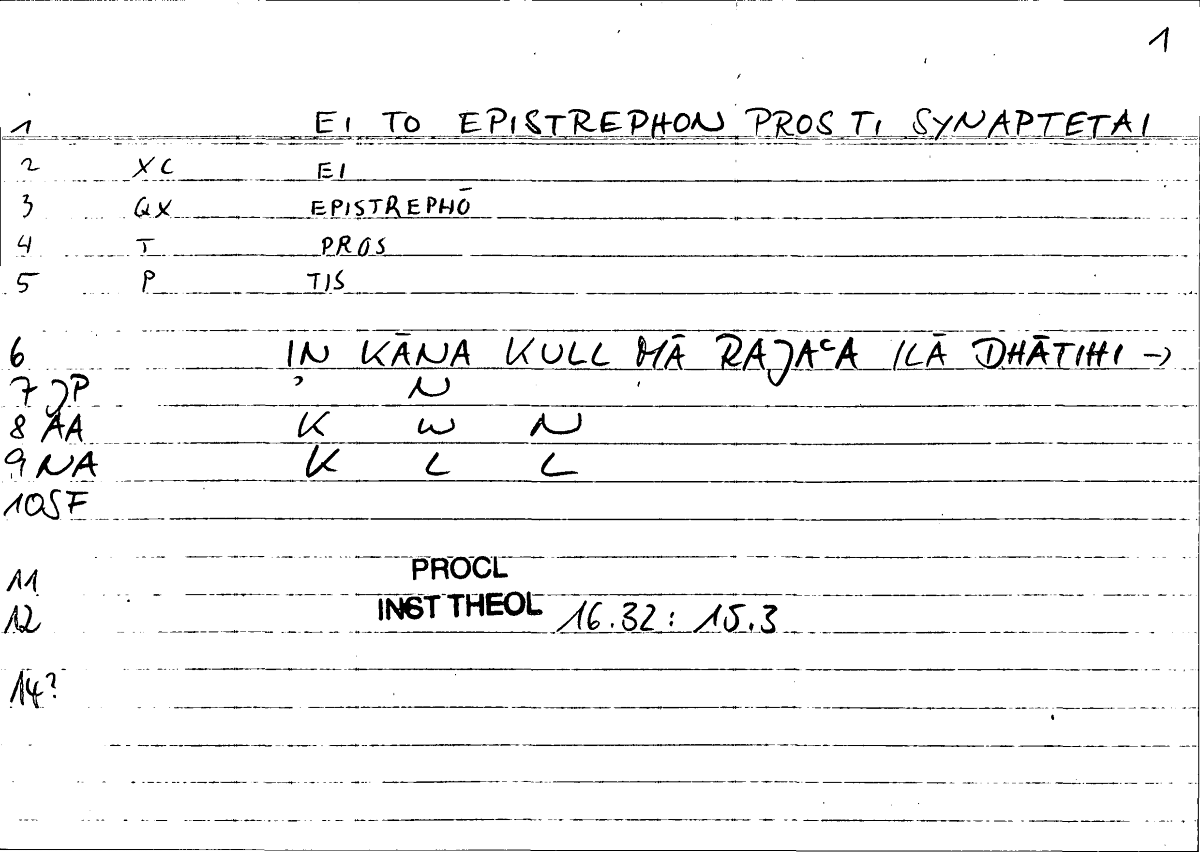 1
1 EI TO EPISTREPHON PROS TI SYNAPTETAI
2 XC EI
3 GX EPISTREPHŌ
4 T PROS
5 P TIS
6 IN KĀNA KULL MĀ RAJAᶜA ILĀ DHĀTIHI →
7 JP ʾ N
8 AA K W N
9 NA K L L
10 SF
11 PROCL
12 INST THEOL 16.32: 15.3
14?